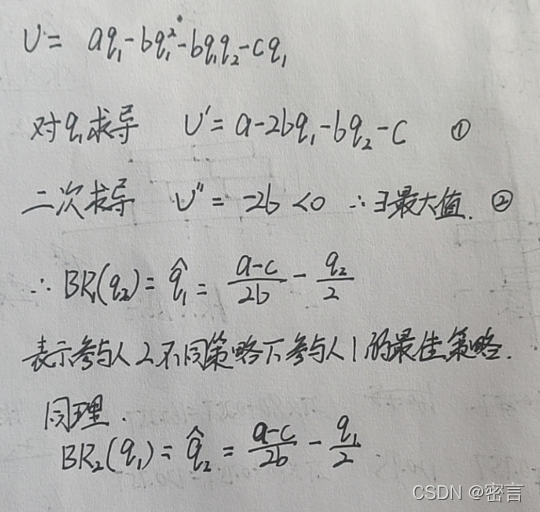 U = aq₁-bq₁²-bq₁q₂-cq₁
对q₁求导 U' = a-2bq₁-bq₂-c ①
二次求导 U'' = -2b <0 ∴∃最大值. ②
∴ BR₁(q₂) = q̂₁ = \frac{a-c}{2b} - \frac{q₂}{2}
表示参与人2不同策略下参与人1的最佳策略.
同理.
BR₂(q₁) = q̂₂ = \frac{a-c}{2b} - \frac{q₁}{2}
CSDN @密言